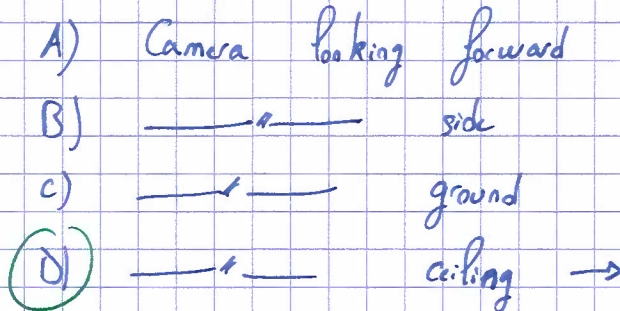 A) Camera looking forward
B) —— " —— side
C) —— " —— ground
D) —— " —— ceiling →